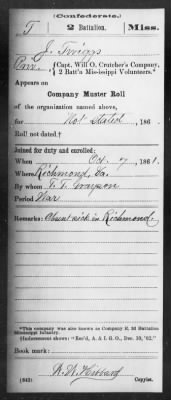 (Confederate.)
T 2 Battalion. Miss.
J. Twiggs
Capt. Will O. Crutcher's Company,
2 Batt'n Mississippi Volunteers.*
Appears on
Company Muster Roll
of the organization named above,
for Not stated, 186 .
Roll not dated.†
Joined for duty and enrolled:
When Oct. 7, 1861.
Where Richmond, Va.
By whom T. T. Grayson
Period War
Remarks: Absent sick in Richmond
*This company was also known as Company E, 2d Battalion
Mississippi Infantry.
†Indorsement shows: "Rec'd, A. & I. G. O., Dec. 10, '62."
Book mark:
R. W. Hibbard
(642) Copyist.